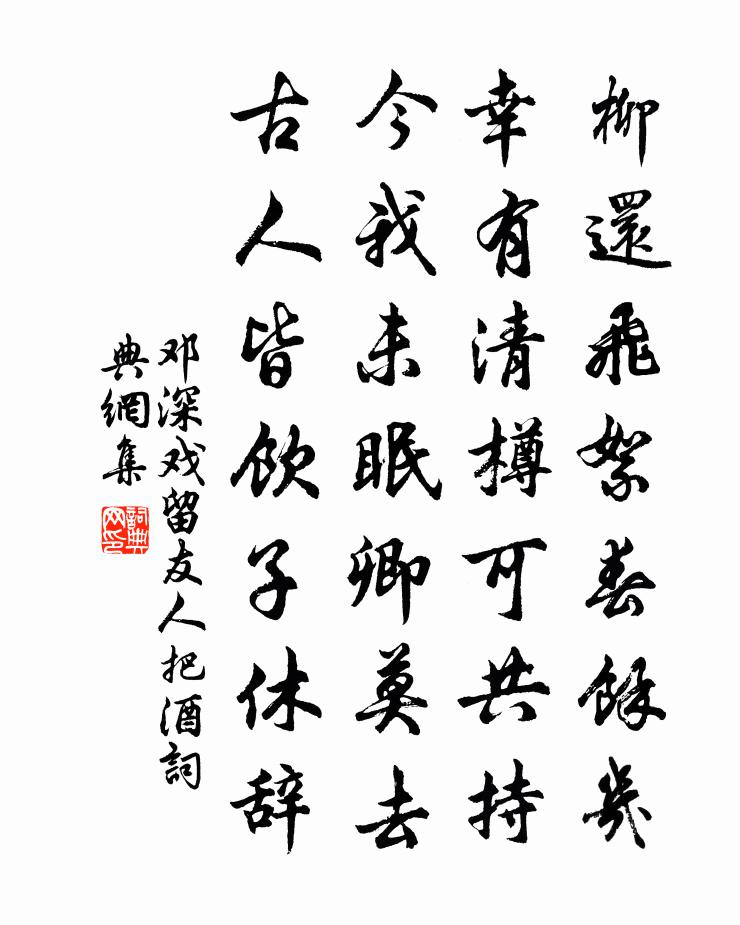 柳還飛絮春餘幾
幸有清樽可共持
今我未眠卿莫去
古人皆飲子休辞
邓深戏留友人把酒詞
典網集
詞典网印